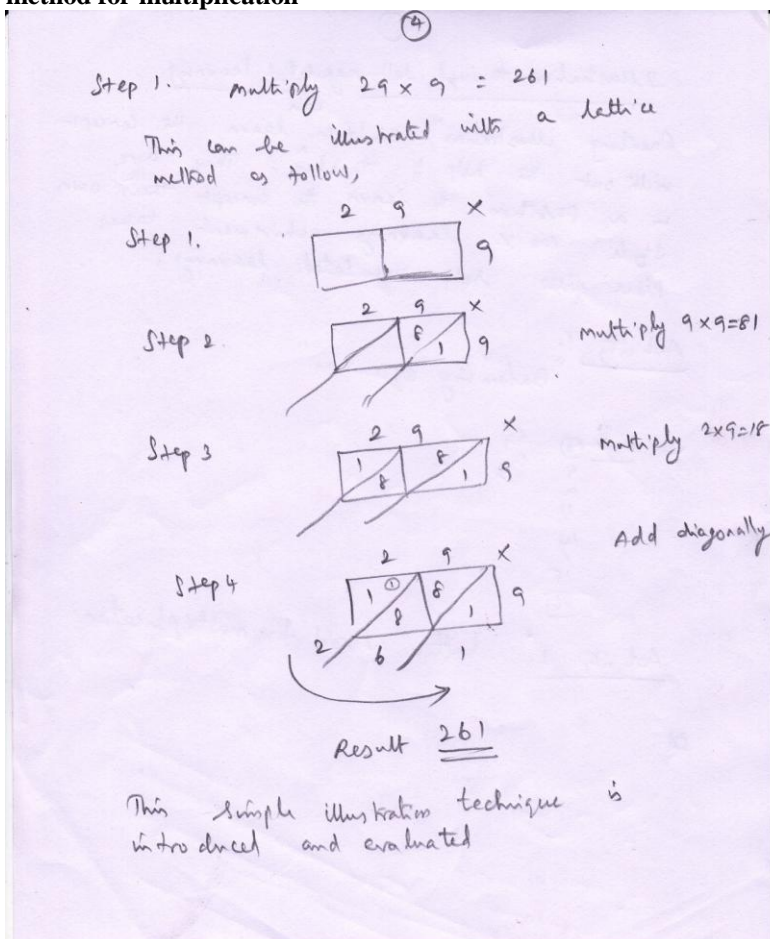 method for multiplication
4
Step 1. multiply 29 x 9 = 261
This can be illustrated with a lattice
method as follow,
2 9 X
Step 1. 9
2 9 X
Step 2. 8 1 9 multiply 9x9=81
2 9 X
Step 3 1 8 8 1 9 multiply 2x9=18
Add diagonally
2 9 X
Step 4 1 1 8 8 1 9
2 6 1
Result 261
This simple illustration technique is
introduced and evaluated